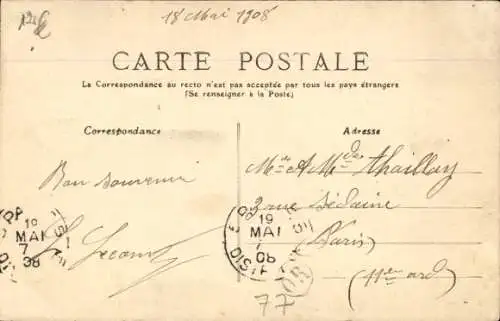 18 Mai 1908
CARTE POSTALE
La Correspondance au recto n'est pas acceptée par tous les pays étrangers
(Se renseigner à la Poste)
Correspondance
Adresse
Bon souvenir
Mr & Mme
3 rue Sedaine
Paris
(11e ard)
19
MAI
08
DIST
19
MAI
7
08
OR
77